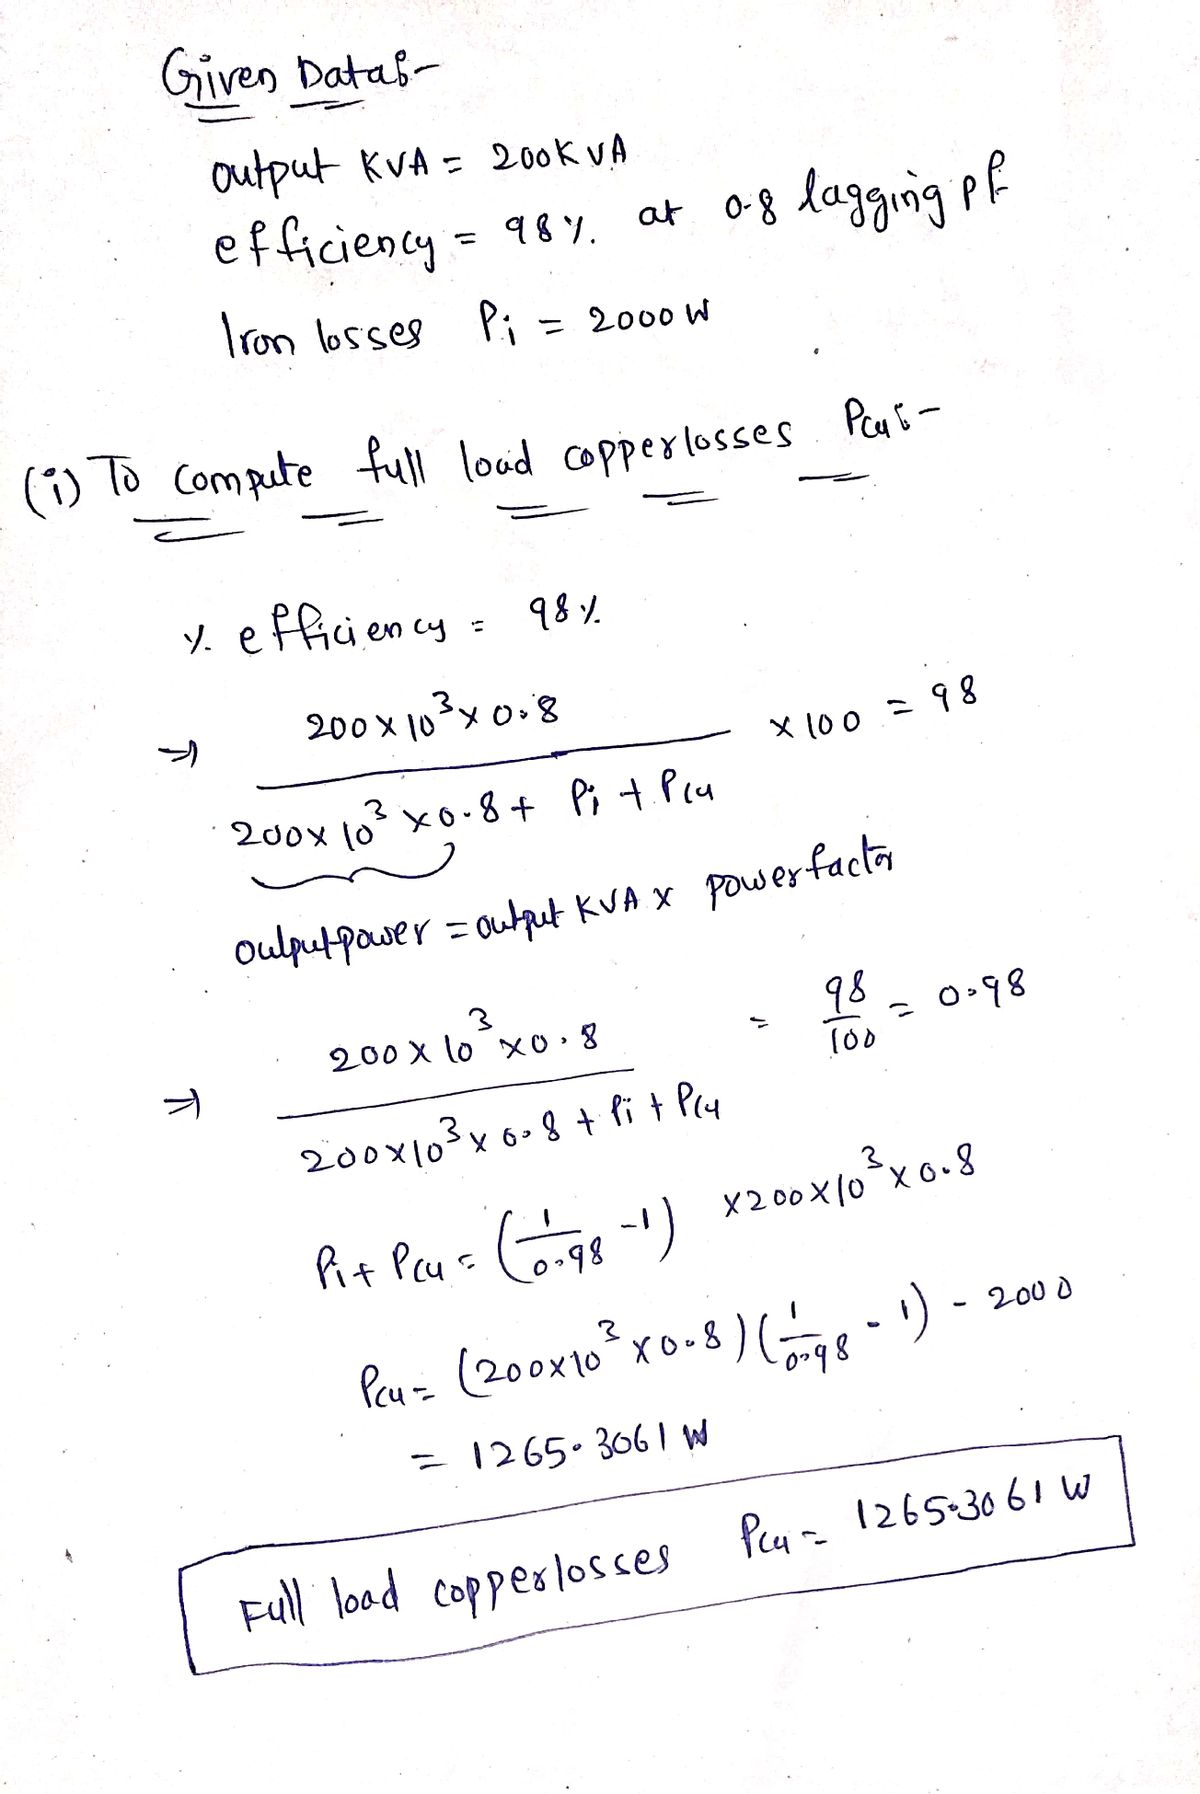 Given Data:-
output KVA = 200KVA
efficiency = 98%. at 0.8 lagging pf
Iron losses Pi = 2000W
(i) To compute full load copperlosses Pcu:-
% efficiency = 98%
⇒ 200×10³×0.8 / 200×10³×0.8 + Pi + Pcu × 100 = 98
outputpower = output KVA × powerfactor
⇒ 200×10³×0.8 / 200×10³×0.8 + Pi + Pcu = 98/100 = 0.98
Pi + Pcu = (1/0.98 -1) ×200×10³×0.8
Pcu = (200×10³×0.8)(1/0.98 - 1) - 2000
= 1265.3061W
Full load copperlosses Pcu = 1265.3061W